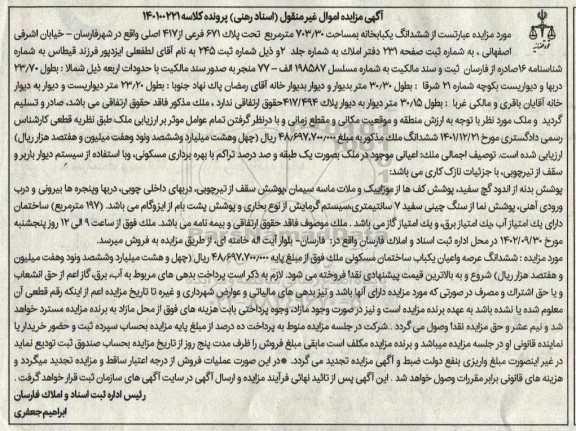 آگهی مزایده اموال غیر منقول (اسناد رهنی) پرونده کلاسه ۱۴۰۱۰۰۲۲۱
مورد مزایده عبارتست از ششدانگ یکبابخانه بمساحت ۷۰۳/۳۰ مترمربع تحت پلاک ۶۷۱ فرعی از ۴۱۷ اصلی واقع در شهرفارسان – خیابان اشرفی
اصفهانی ، به شماره ثبت صفحه ۲۳۱ دفتر املاک به شماره جلد ۲ و ذیل شماره ثبت ۲۴۵ به نام آقای لطفعلی ایزدپور فرزند قیطاس به شماره
شناسنامه ۱۶ صادره از فارسان ثبت و سند مالکیت به شماره مسلسل ۱۹۸۵۸۷ الف – ۷۷ منجر به صدور سند مالکیت با حدودات اربعه ذیل شمالا : بطول ۲۳/۷۰
دربها و دیواریست بکوچه شماره ۲۱ شرقا : بطول ۳۰/۳۰ متر بدیوار و دیوار بدیوار خانه آقای رمضان پاک نهاد جنوبا : بطول ۲۳/۲۰ متر دیواریست و دیوار به دیوار
خانه آقایان باقری و مالکی غربا : بطول ۳۰/۱۵ متر دیوار به دیوار پلاک ۴۱۷/۴۹۴ حقوق ارتفاقی ندارد ، ملک مذکور فاقد حقوق ارتفاقی می باشد، صادر و تسلیم
گردید و ملک مورد نظر با توجه به ارزش منطقه و موقعیت مکانی و مقطع زمانی و با درنظر گرفتن تمام عوامل موثر بر ارزیابی ملک طبق نظریه قطعی کارشناس
رسمی دادگستری مورخ ۱۴۰۱/۱۲/۲۱ ششدانگ ملک مذکور به مبلغ ۴۸/۶۹۷.۷۰۰/۰۰۰ ریال (چهل وهشت میلیارد وششصد ونود وهفت میلیون و هفتصد هزار ریال)
ارزیابی شده است. توصیف اجمالی ملک: اعیانی موجود در ملک بصورت یک طبقه و صد درصد تراکم با بهره برداری مسکونی، وبا استفاده از سیستم دیوار باربر و
سقف از تیرچوبی، با جزئیات نازک کاری می باشد:
پوشش بدنه از اندود گچ سفید، پوشش کف ها از موزاییک و ملات ماسه سیمان ،پوشش سقف از تیرچوبی، دربهای داخلی چوبی، دربها وپنجره ها بیرونی و درب
ورودی آهنی، پوشش نما از سنگ چینی سفید ۷ سانتیمتری،سیستم گرمایش از نوع بخاری و پوشش پشت بام از ایزوگام می باشد. (۱۹۷ مترمربع) ساختمان
دارای یک امتیاز آب یک امتیاز برق، و یک امتیاز گاز می باشد . ملک موصوف فاقد حقوق ارتفاقی و بیمه نامه می باشد. ملک فوق از ساعت ۹ الی ۱۲ روز پنجشنبه
مورخ ۱۴۰۲/۰۹/۳۰ در محل اداره ثبت اسناد و املاک فارسان واقع در: فارسان- بلوار آیت اله خامنه ای، از طریق مزایده به فروش میرسد.
مورد مزایده : ششدانگ عرصه واعیان یکباب ساختمان مسکونی ملک فوق از مبلغ پایه ۴۸/۶۹۷.۷۰۰/۰۰۰ ریال (چهل و هشت میلیارد وششصد ونود وهفت میلیون
و هفتصد هزار ریال) شروع و به بالاترین قیمت پیشنهادی نقدا فروخته می شود. لازم به ذکر است پرداخت بدهی های مربوط به آب، برق، گاز اعم از حق انشعاب
و یا حق اشتراک و مصرف در صورتی که مورد مزایده دارای آنها باشد و نیز بدهی های مالیاتی و عوارض شهرداری و غیره تا تاریخ مزایده اعم از اینکه رقم قطعی آن
معلوم شده یا نشده باشد به عهده برنده مزایده است و نیز در صورت وجود مازاد، وجوه پرداختی بابت هزینه های فوق از محل مازاد به برنده مزایده مسترد خواهد
شد و نیم عشر و حق مزایده نقدا وصول می گردد ..شرکت در جلسه مزایده منوط به پرداخت ده درصد از مبلغ پایه مزایده بحساب سپرده ثبت و حضور خریدار یا
نماینده قانونی او در جلسه مزایده میباشد و برنده مزایده مکلف است مابقی مبلغ فروش را ظرف مدت پنج روز از تاریخ مزایده بحساب صندوق ثبت تودیع نماید
در غیر اینصورت مبلغ واریزی بنفع دولت ضبط و آگهی مزایده تجدید می گردد. *در این صورت عملیات فروش از درجه اعتبار ساقط و مزایده تجدید میگردد و
هزینه های قانونی برابر مقررات وصول خواهد شد . این آگهی پس از تائید نهائی فرآیند مزایده و ارسال آگهی در سایت آگهی های سازمان ثبت قرار خواهد گرفت .
رئیس اداره ثبت اسناد و املاک فارسان
ابراهیم جعفری